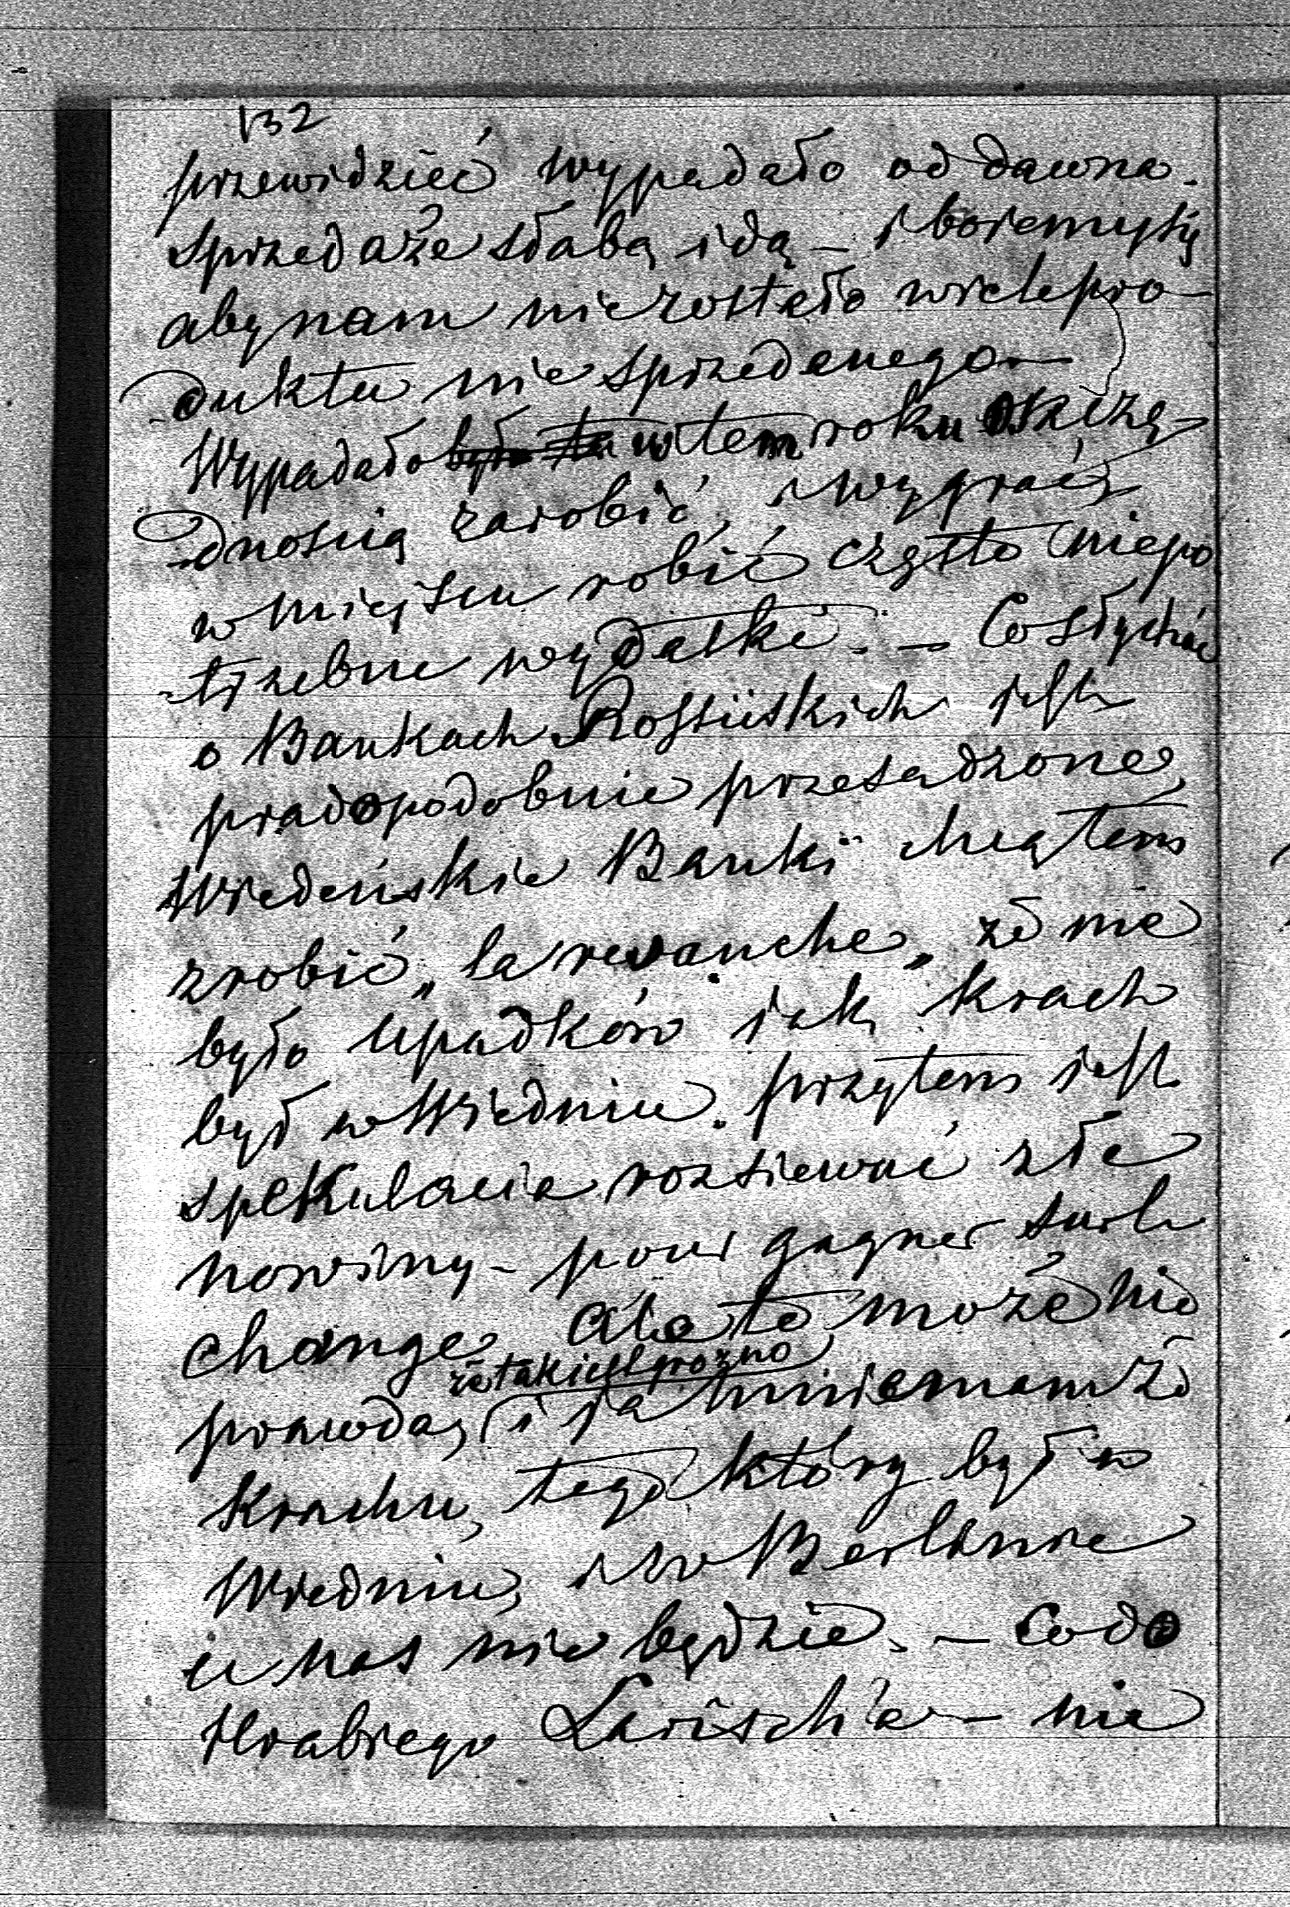 132
przewidzieć wypadało od dawna.
sprzedaże słabą idą – i boiemysię
aby nam nie zostało wiele pro-
duktu nie sprzedanego –
Wypadało było w tem roku oszczę-
dnością zarobić, i wygrać,
w miejscu robić często niepo
trzebne wydatki. – Co słychać
o Bankach Rossiiskich jest
pradopodobnie przesadzone,
Wiedeńskie Banki chcą tem
zrobić „la revanche„ że nie
było upadków jak krach
był w Wiedniu. przytem jest
spekulacia rozsiewać złe
nowiny – pour gagner sur le
change. Ale to może nie
że takie próżno
prawda, i ja mniemam że
Krachu, tego który był w
Wiedniu, i w Berlinie
u nas nie będzie. – Co do
Hrabiego Larisch'a – nie